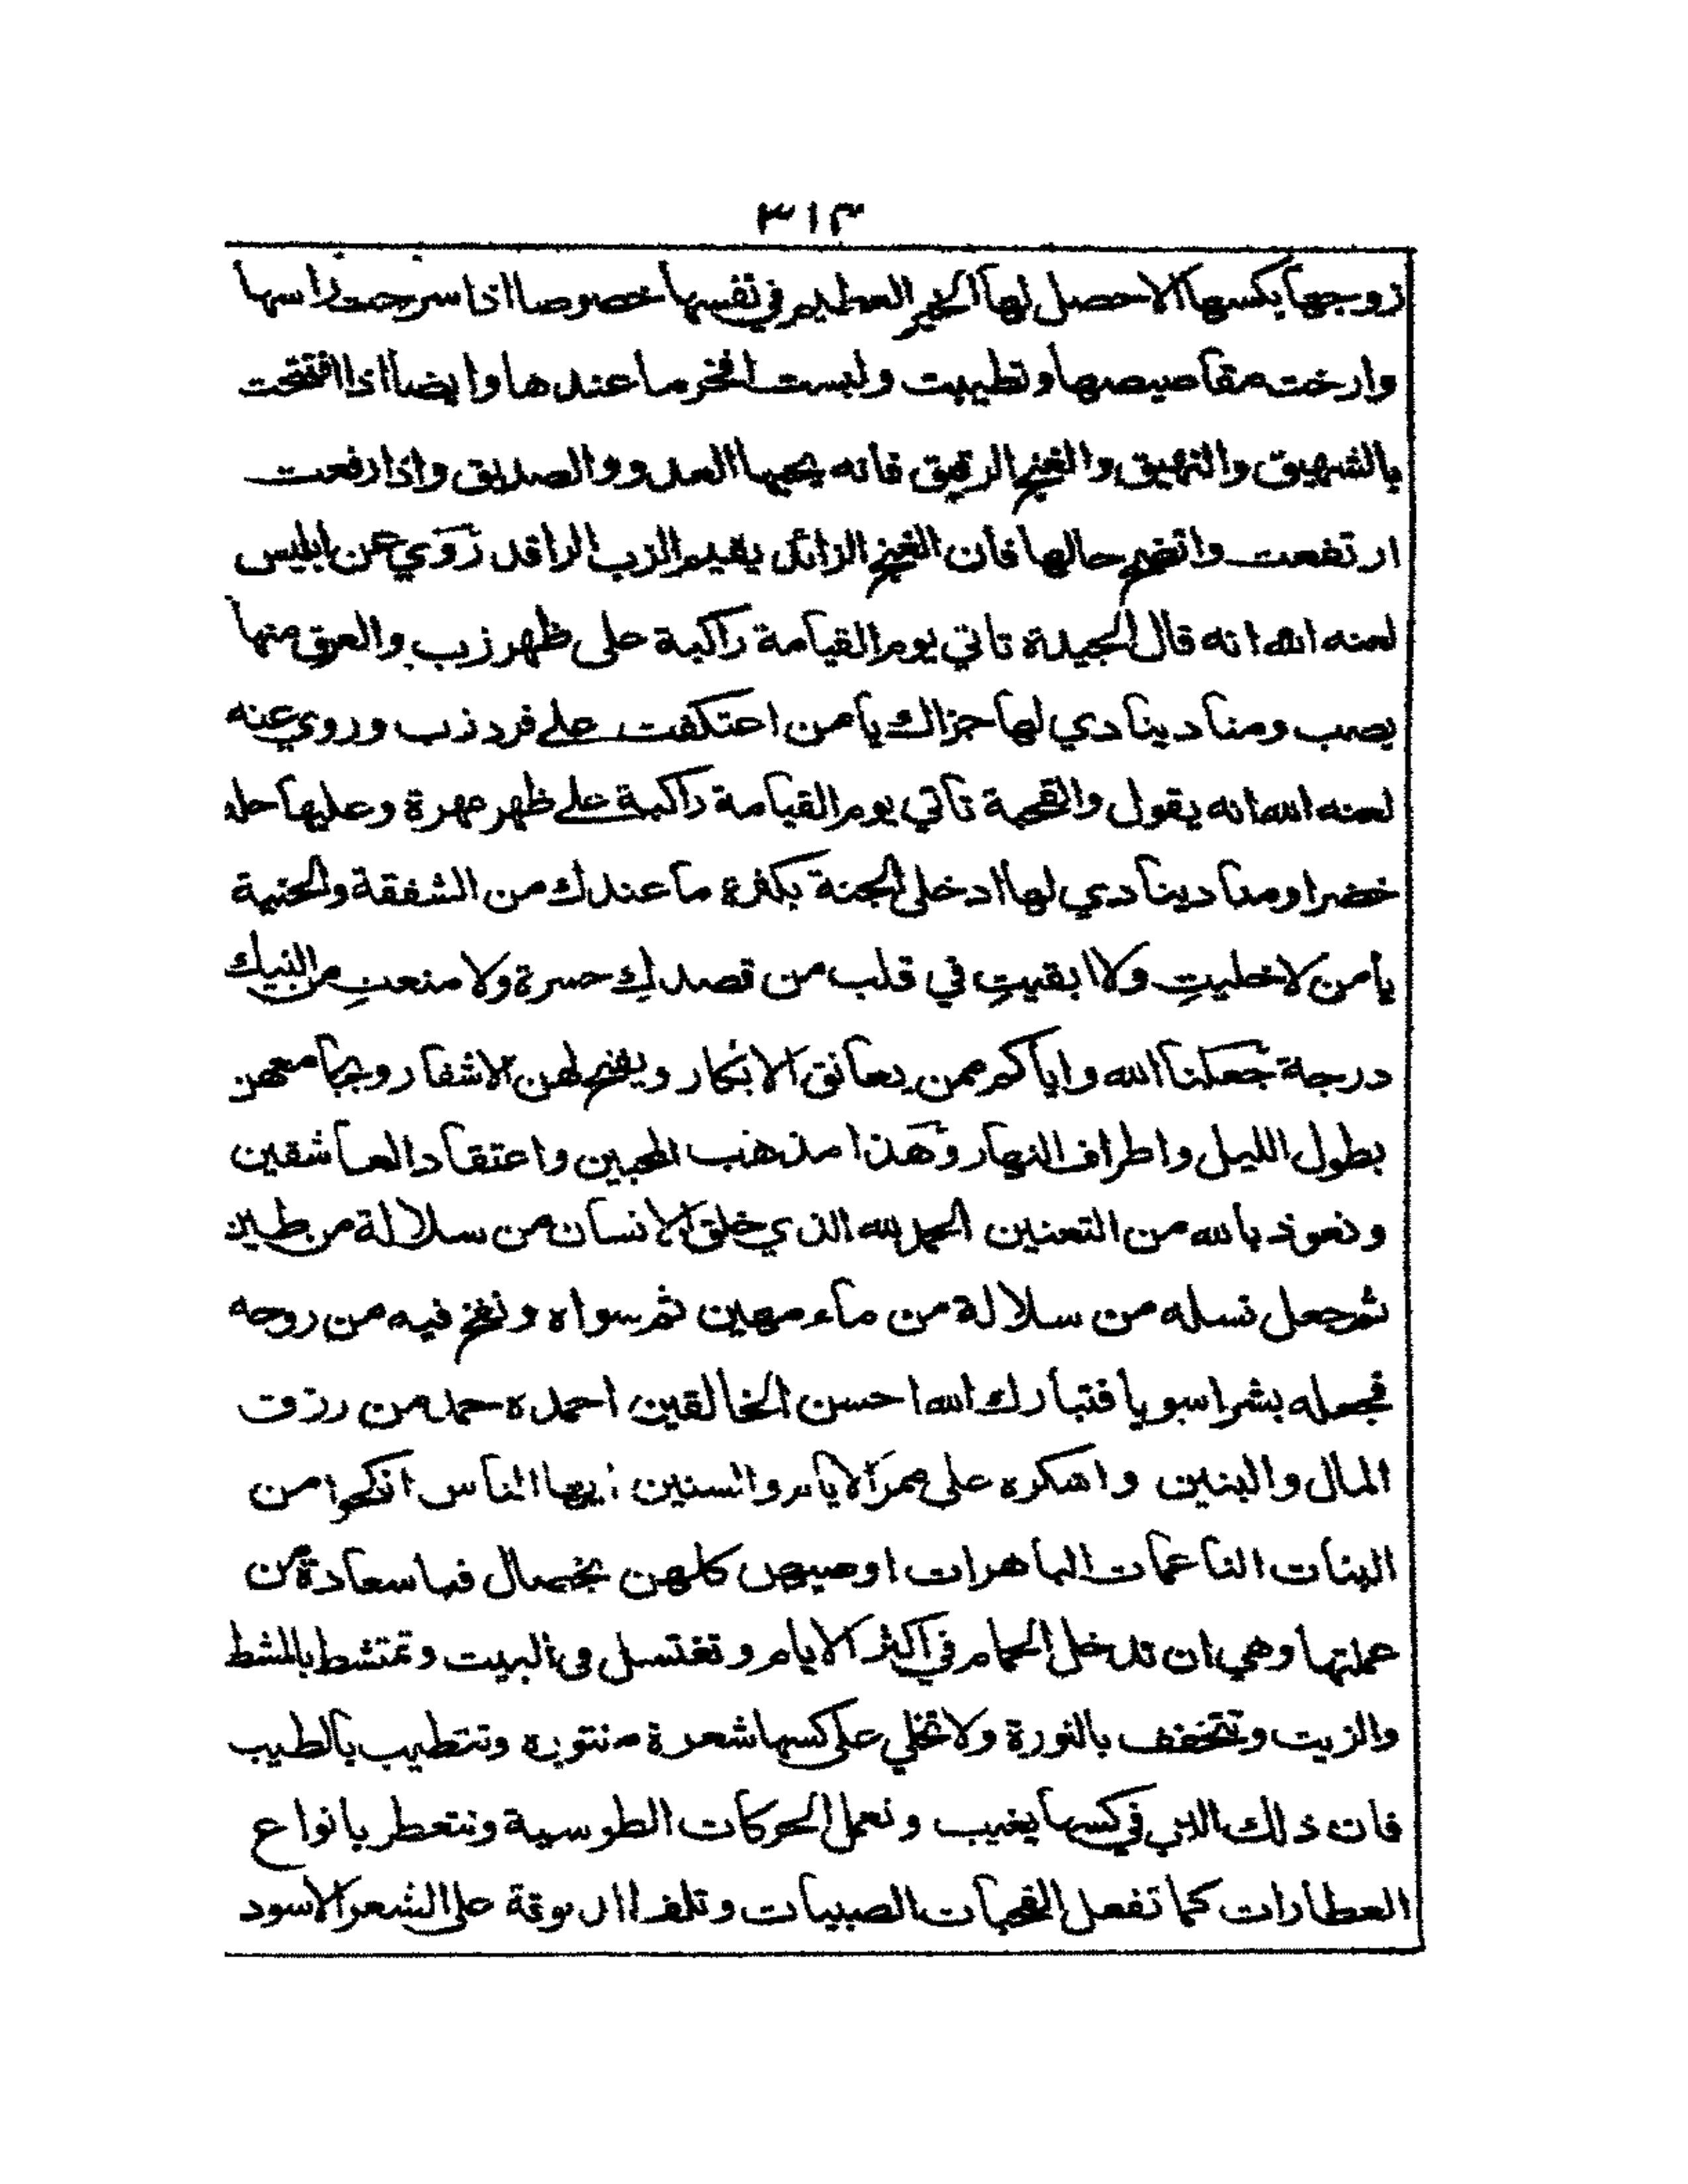 ٣١٣
زوجها بكسها الا حصل لها الخير العظيم في نفسها خصوصا اذا سرحت راسها
وارخت مقاصيصها وتطيبت ولبست افخر ما عندها وايضا اذا افتتحت
بالشهيق والنهيق والغنج الرقيق فانه يحبها العدو والصديق واذا رفعت
ارتفعت واتضح حالها فان الغنج الزائد يقيم الزب الراقد روي عن ابليس
لعنه الله انه قال الجيدة تاتي يوم القيامة راكبة على ظهر زب والعرق منها
يصب ومناد ينادي لها جزاك يا من اعتكفت على فرد زب وروي عنه
لعنه الله انه يقول والقحبة تاتي يوم القيامة راكبة على ظهر مهرة وعليها حله
خضرا ومناد ينادي لها ادخلى الجنة بكثرة ما عندك من الشفقة والحنية
يا من لا خليتِ ولا ابقيتِ في قلب من قصدكِ حسرة ولا منعتِ من النيك
درجة جعلنا الله واياكم ممن يعانق الابكار ويفتح لهن الاشفار وجها معهن
بطول الليل واطراف النهار وهذا مذهب المحبين واعتقاد العاشقين
ونعوذ بالله من التعنين الحمد لله الذي خلق الانسان من سلالة من طين
ثم جعل نسله من سلالة من ماء مهين ثم سواه ونفخ فيه من روحه
فجعله بشرا سويا فتبارك الله احسن الخالقين احمده حمد من رزق
المال والبنين واشكره على ممر الايام والسنين ايها الناس انكحوا من
البنات الناعمات الباهرات اوصيهن كلهن بخصال فيا سعادة من
عملتها وهي ان تدخل الحمام في اكثر الايام وتغتسل في البيت وتمتشط بالمشط
والزيت وتتخفف بالنورة ولا تخلي على كسها شعرة منتوره وتتطيب بالطيب
فان ذلك الزب في كسها يغيب وتعمل الحركات الطوسية وتتعطر بانواع
العطارات كما تفعل القحبات الصبيات وتلف على الشعر الاسود